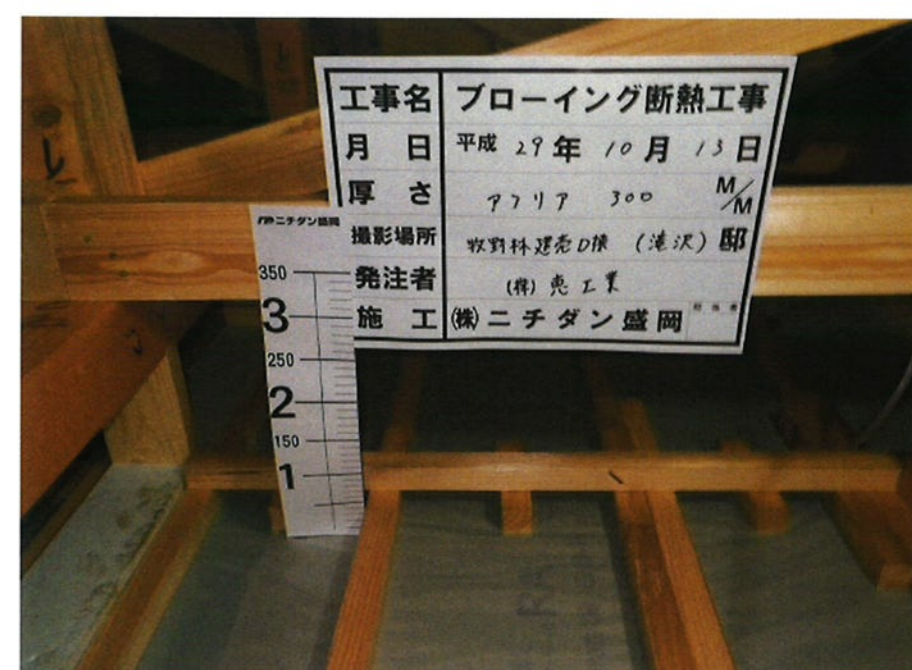 工事名 ブローイング断熱工事
月日 平成 29年 10月 13日
厚さ アフリア 300 M/M
撮影場所 牧野林建売D棟 (滝沢) 邸
発注者 (株) 恵工業
施工 ㈱ニチダン盛岡 担当者
ニチダン盛岡
350
3
250
2
150
1